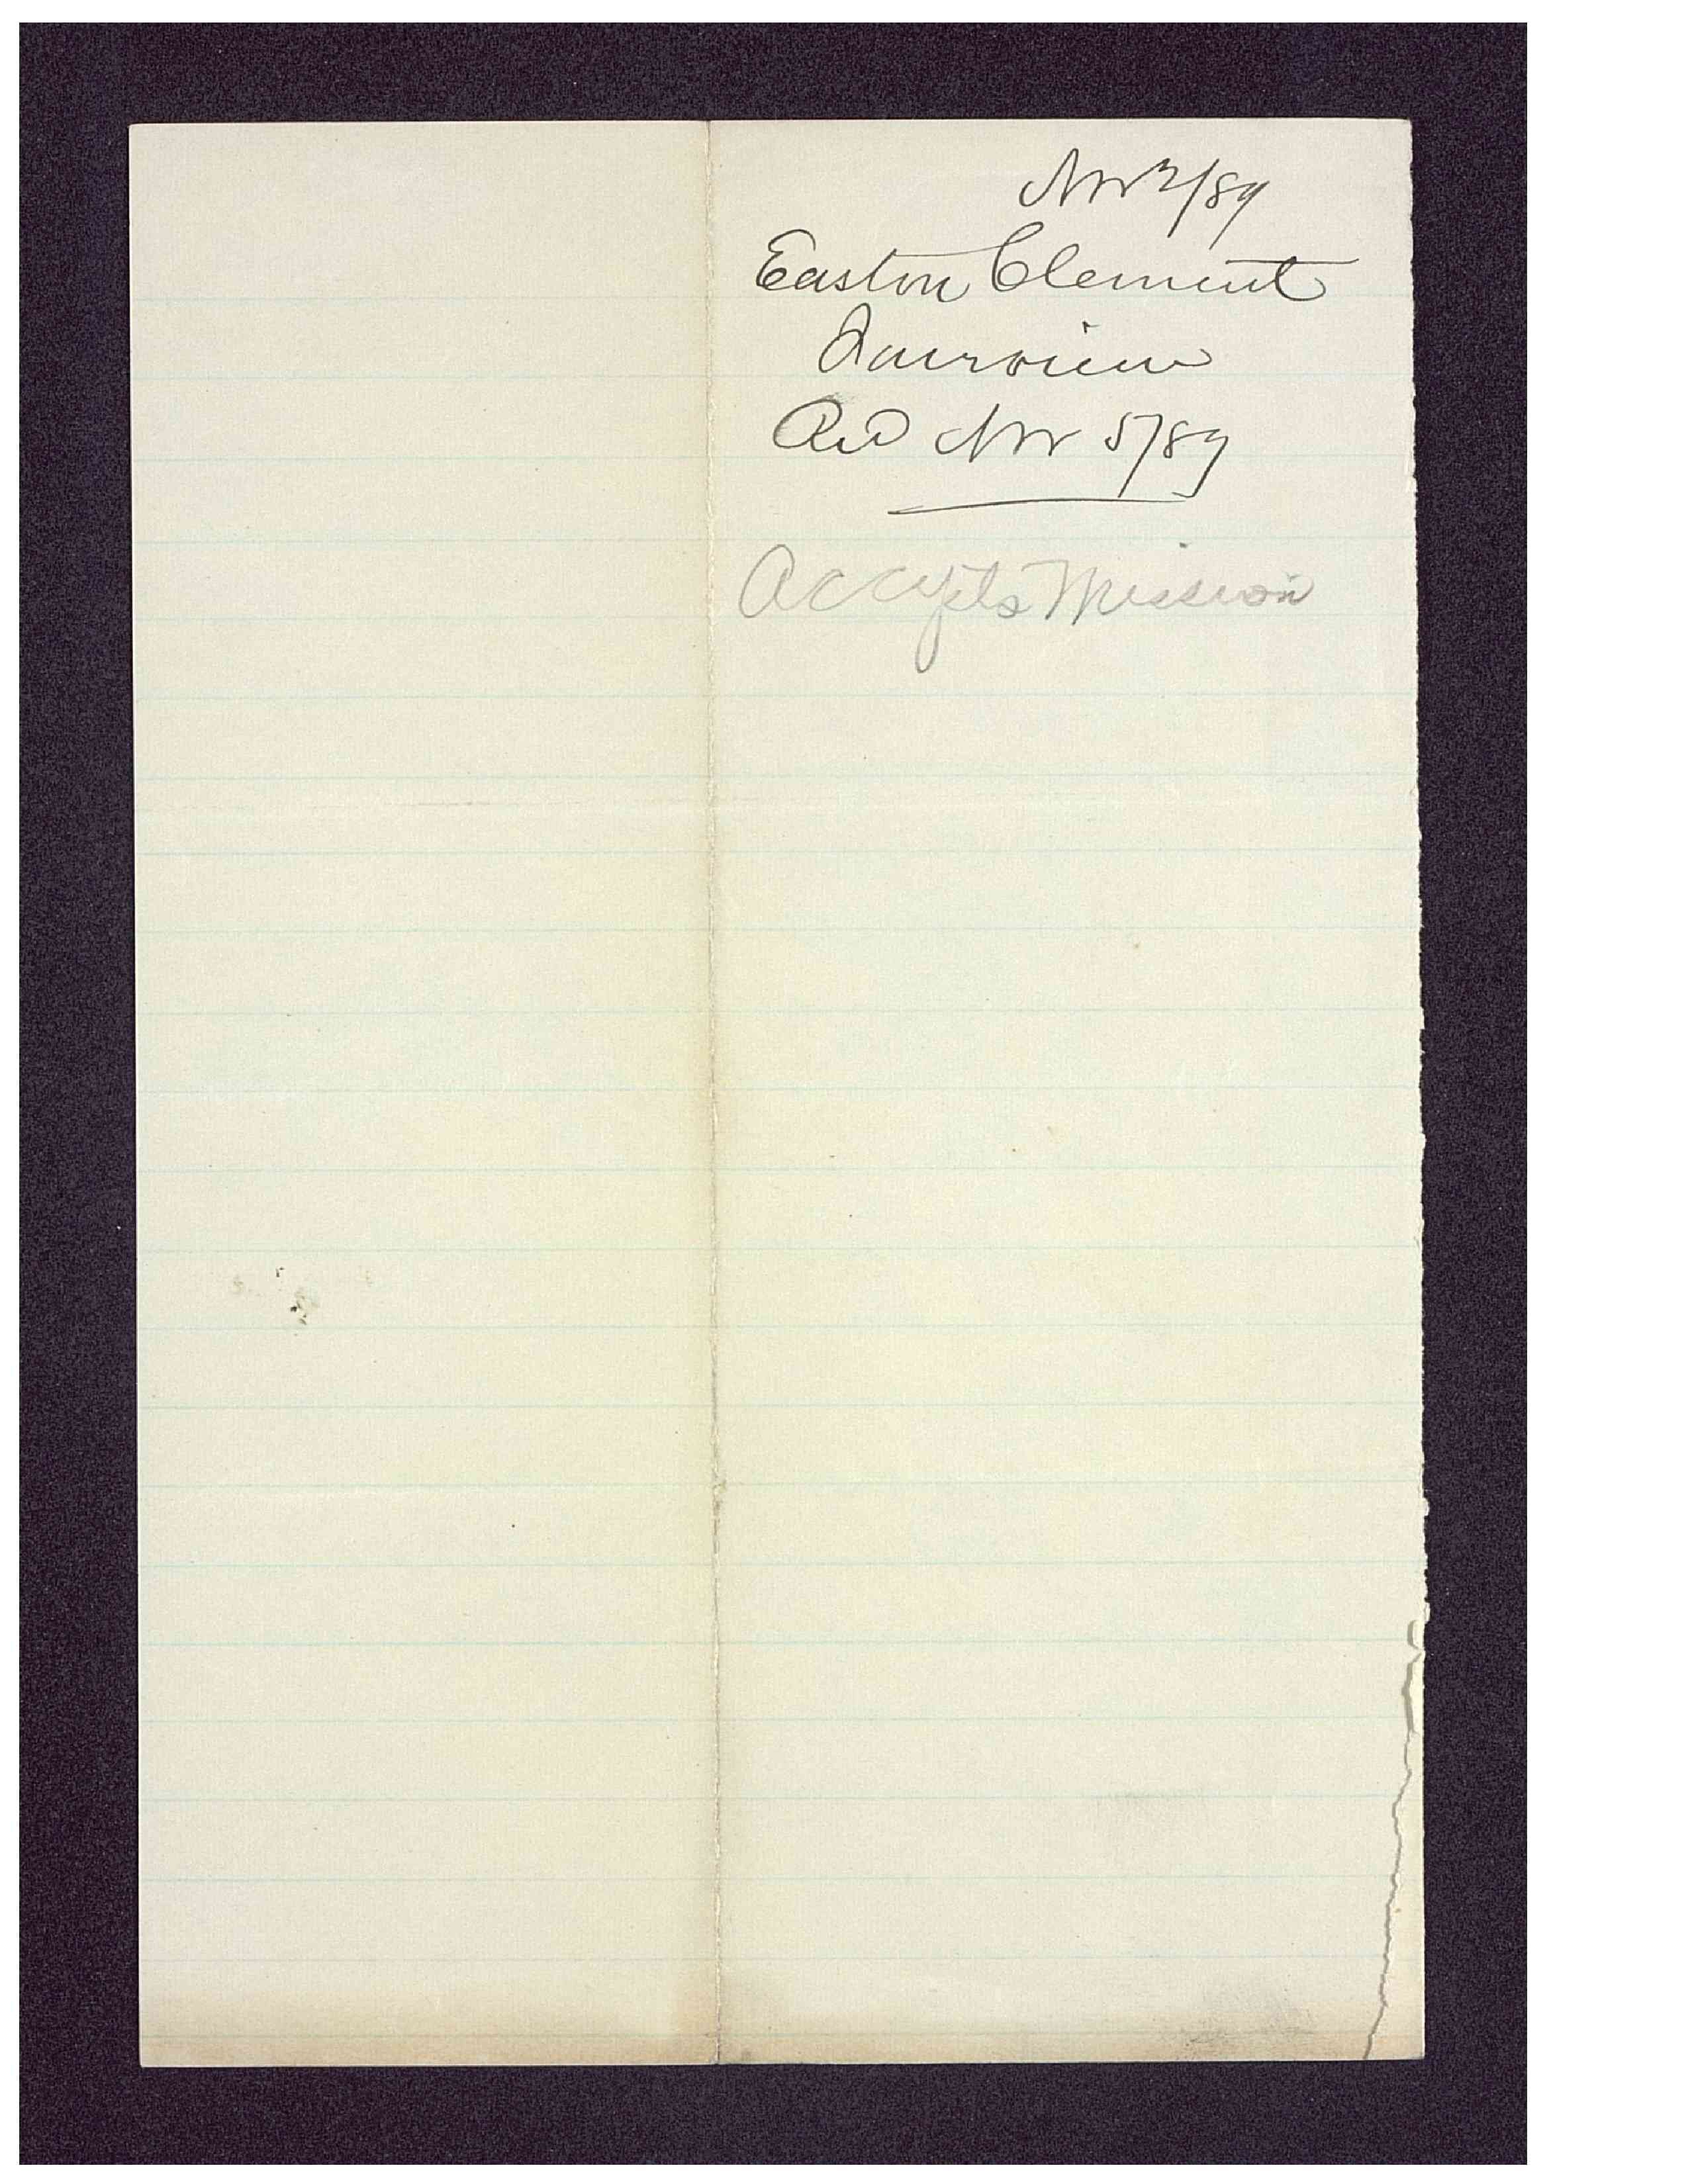 Nov 2/89
Easton Clement
Fairview
Recd Nov 5/89
Accepts Mission